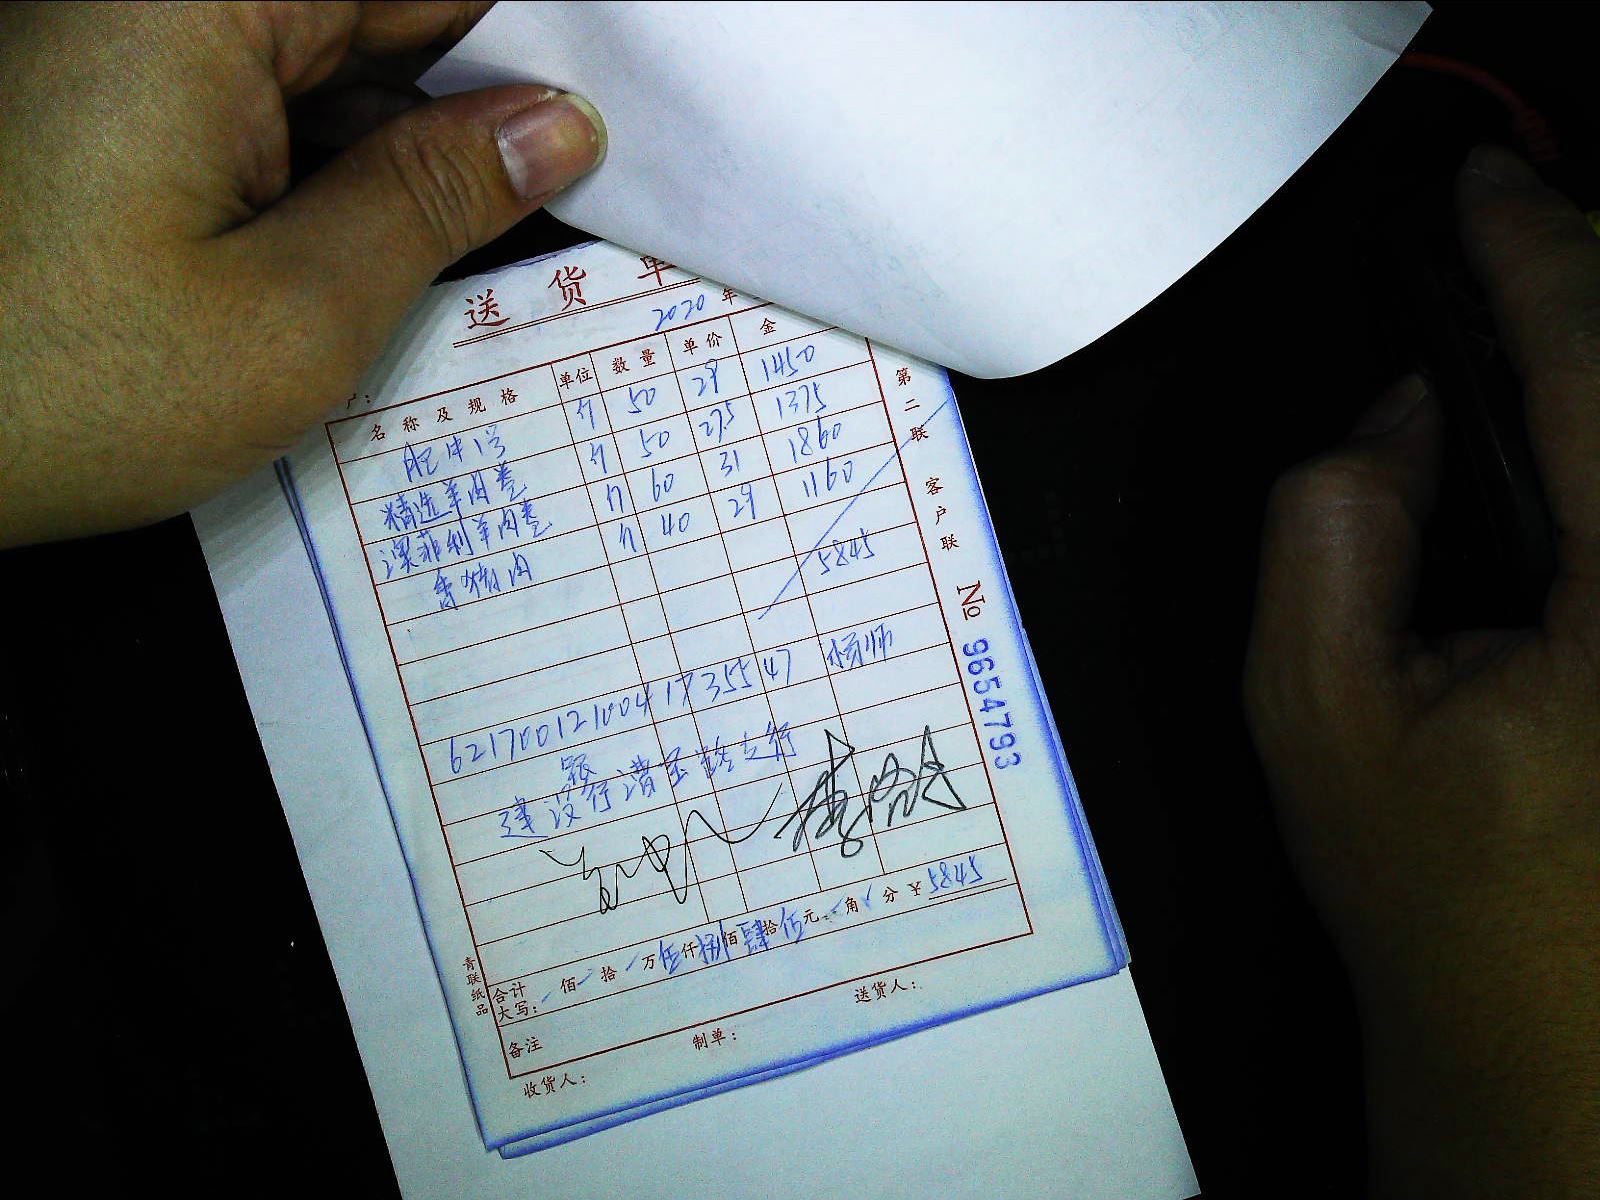 送货单
2020 年
户：
名称及规格 单位 数量 单价 金
肥牛1号 斤 50 29 1450
精选羊肉卷 斤 50 27.5 1375
澳菲利羊肉卷 斤 60 31 1860
香猪肉 斤 40 29 1160
5845
6217001210041735547 杨师
建设银行漕宝路支行
合计大写： 佰 拾 万 伍仟捌佰肆拾伍元 角 分 ¥5845
备注
制单：
送货人：
收货人：
第二联 客户联
No 9654793
青联纸品